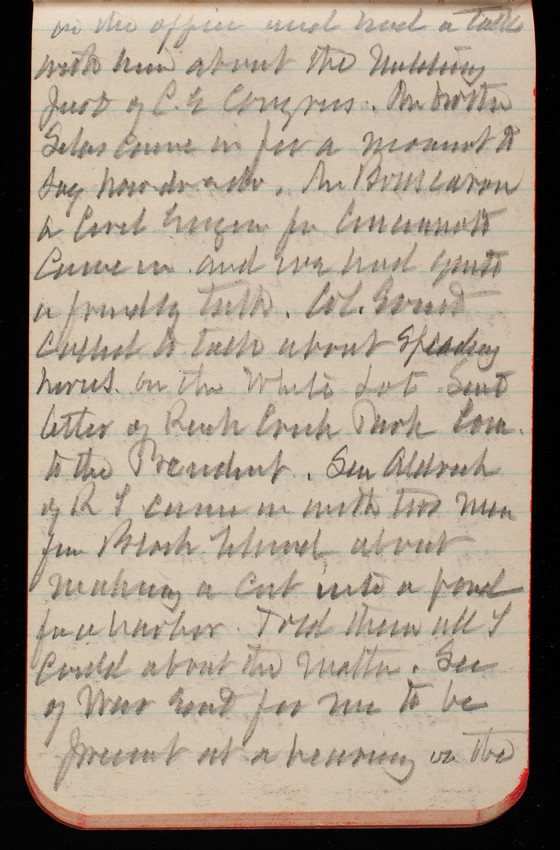 in the office and had a talk
with him about the Building
Just of C.E Congress. Mr Brother
Silas came in for a moment to
say how do do. Mr Bouscaren
a Civil Engin for Cincinnati
Came in and we had quite
a friendly talk. Col. Ernst
called to talk about Speeding
horses on the White Lot Sent
letter of Rock Creek Park Com.
to the President. Sen Aldrich
of R I came in with two men
from Block Island about
making a cut into a pond
for a harbor. Told them all I
could about the matter. Sec
of War sent for me to be
present at a hearing in the